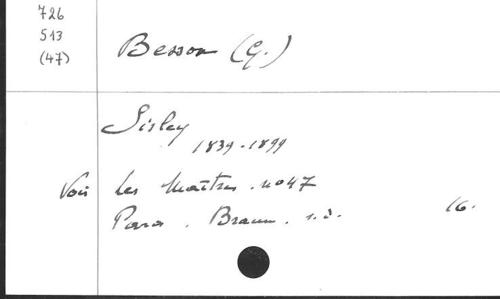 726
513
(47)
Besson (G.)
Sisley
1839-1899
Voir Les Maîtres. n° 47
Paris. Braun. s.d.
16.